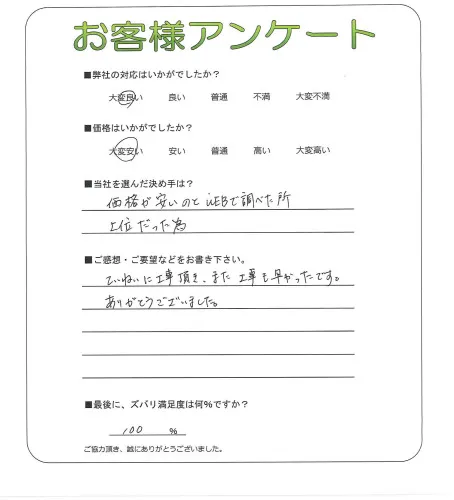 お客様アンケート
■弊社の対応はいかがでしたか？
大変良い 良い 普通 不満 大変不満
■価格はいかがでしたか？
大変安い 安い 普通 高い 大変高い
■当社を選んだ決め手は？
価格が安いのと WEBで調べた所
上位だった為
■ご感想・ご要望などをお書き下さい。
ていねいに工事頂き、また 工事も早かったです。
ありがとうございました。
■最後に、ズバリ満足度は何％ですか？
100 ％
ご協力頂き、誠にありがとうございました。